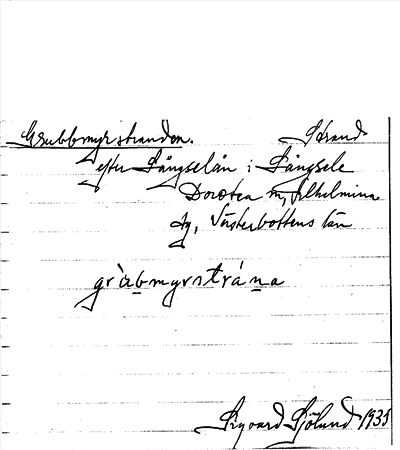 Grubbmyrstranden. Strand
efter Långselån i Långsele
Dorotea m, Vilhelmina
tg, Västerbottens län
gràbmyrstrána
Sigvard Sjölund 1935